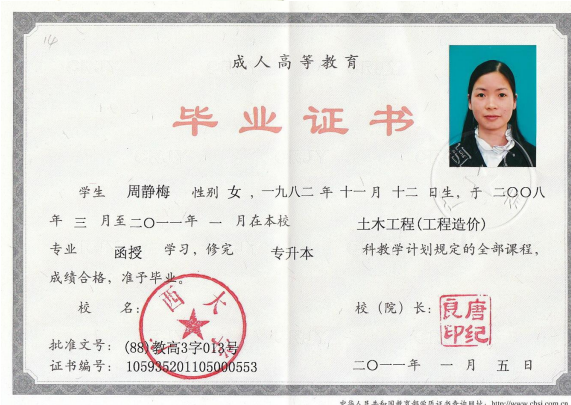 成人高等教育
毕业证书
学生 周静梅 性别 女, 一九八二 年 十一 月 十二 日生, 于 二〇〇八
年 三 月至二〇一一年 一 月在本校 土木工程(工程造价)
专业 函授 学习, 修完 专升本 科教学计划规定的全部课程,
成绩合格, 准予毕业。
校 名: 校(院)长: 唐纪良印
批准文号: (88)教高3字013号
证书编号: 105935201105000553 二〇一一年 一 月 五 日
中华人民共和国教育部学历证书查询网址: http://www.chsi.com.cn